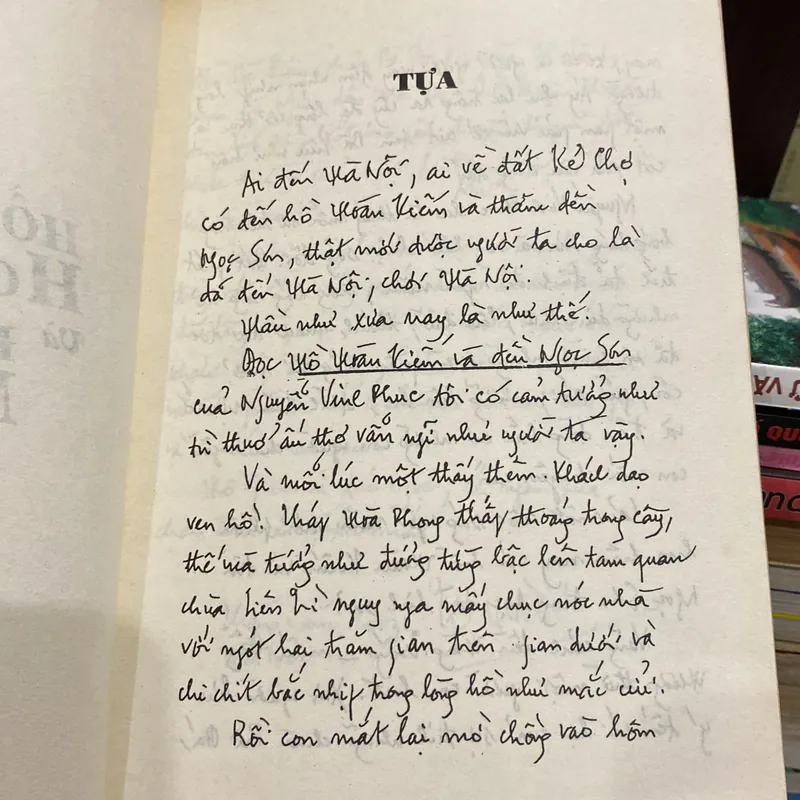 TỰA
Ai đến Hà Nội, ai về đất Kẻ Chợ
có đến hồ Hoàn Kiếm và thăm đền
Ngọc Sơn, thật mới được người ta cho là
đã đến Hà Nội, chơi Hà Nội.
Hầu như xưa nay là như thế.
Đọc Hồ Hoàn Kiếm và đền Ngọc Sơn
của Nguyễn Vinh Phúc tôi có cảm tưởng như
từ thuở ấu thơ vẫn nghĩ như người ta vậy.
Và mỗi lúc một thấy thêm. Khách dạo
ven hồ! Tháp Hòa Phong thấp thoáng trong cây,
thế mà tưởng như đương từng bậc lên tam quan
chùa Liên Trì nguy nga mấy chục nóc nhà
với ngót hai trăm gian trên gian dưới và
chi chít bắc nhịp trong lòng hồ như mắc cửi.
Rồi con mắt lại mở chồng vào hôm
HỒ
HO
và